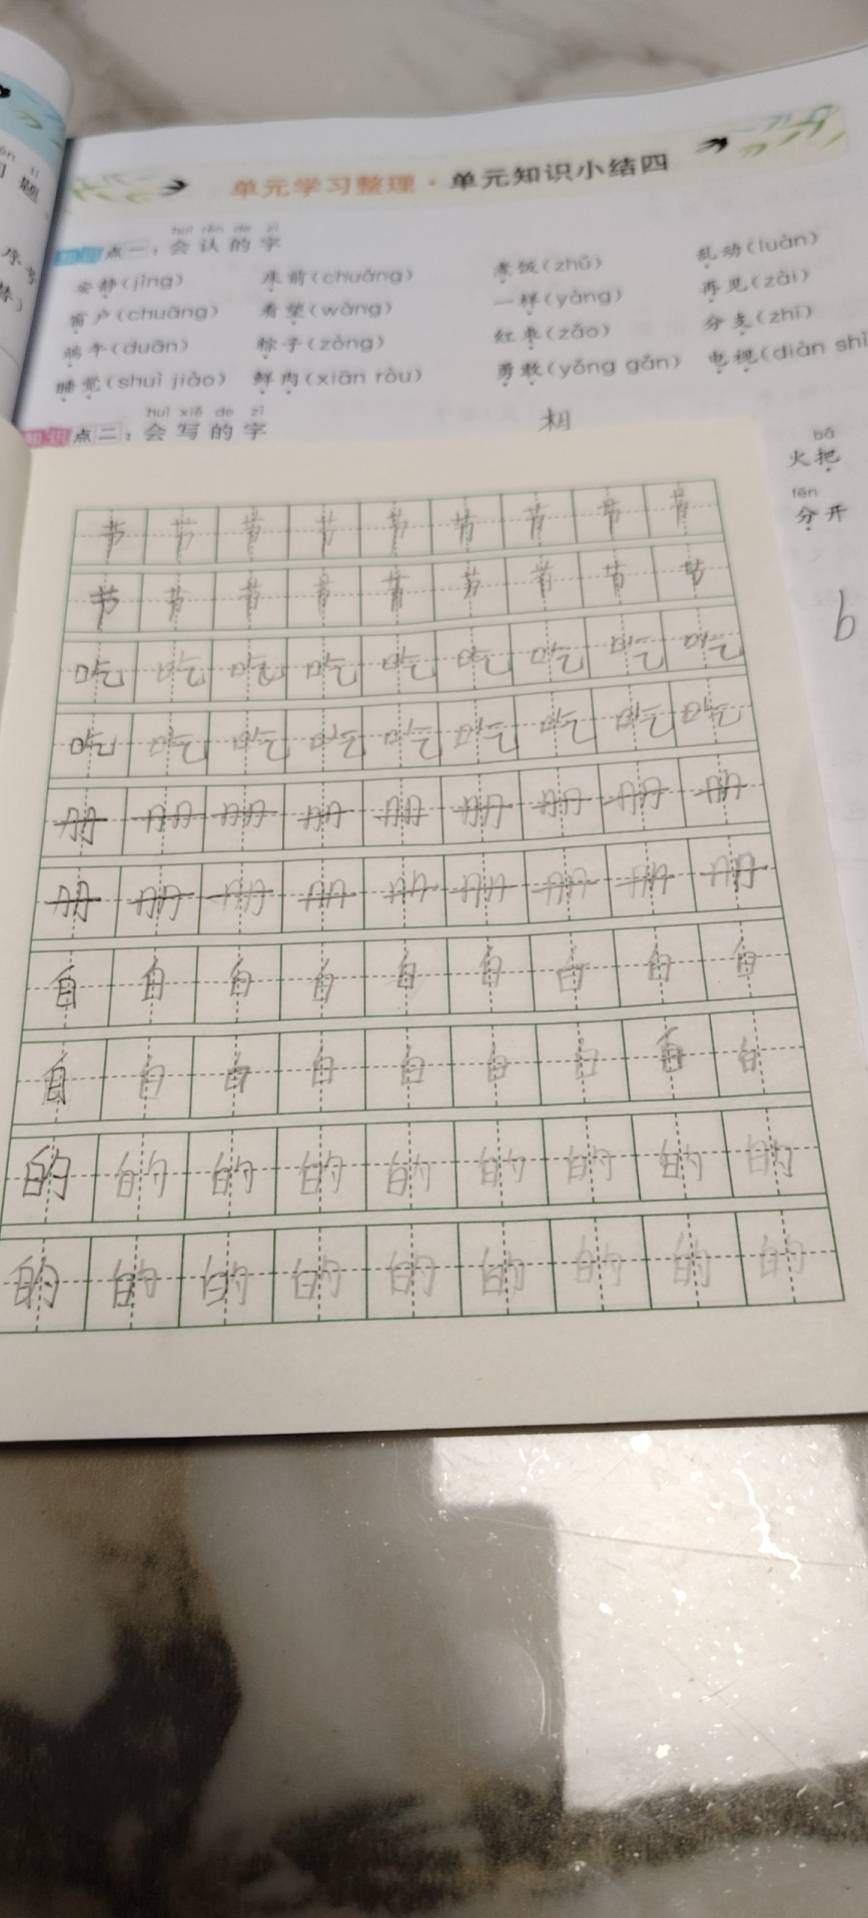 题
单元学习整理·单元知识小结四
huì rèn de zì
知识点一：会认的字
安静(jìng) 床前(chuáng) 煮饭(zhǔ) 乱动(luàn)
窗户(chuāng) 看望(wàng) 一样(yàng) 再见(zài)
端午(duān) 粽子(zòng) 红枣(zǎo) 分支(zhī)
睡觉(shuì jiào) 鲜肉(xiān ròu) 勇敢(yǒng gǎn) 电视(diàn shì
huì xiě de zì
知识点二：会写的字
相
bǎ
火把
fēn
分开
节节节节节节节节节
节节节节节节节节节
吃吃吃吃吃吃吃吃吃
吃吃吃吃吃吃吃吃吃
册册册册册册册册册
册册册册册册册册册
自自自自自自自自自
自自自自自自自自自
的的的的的的的的的
的的的的的的的的的